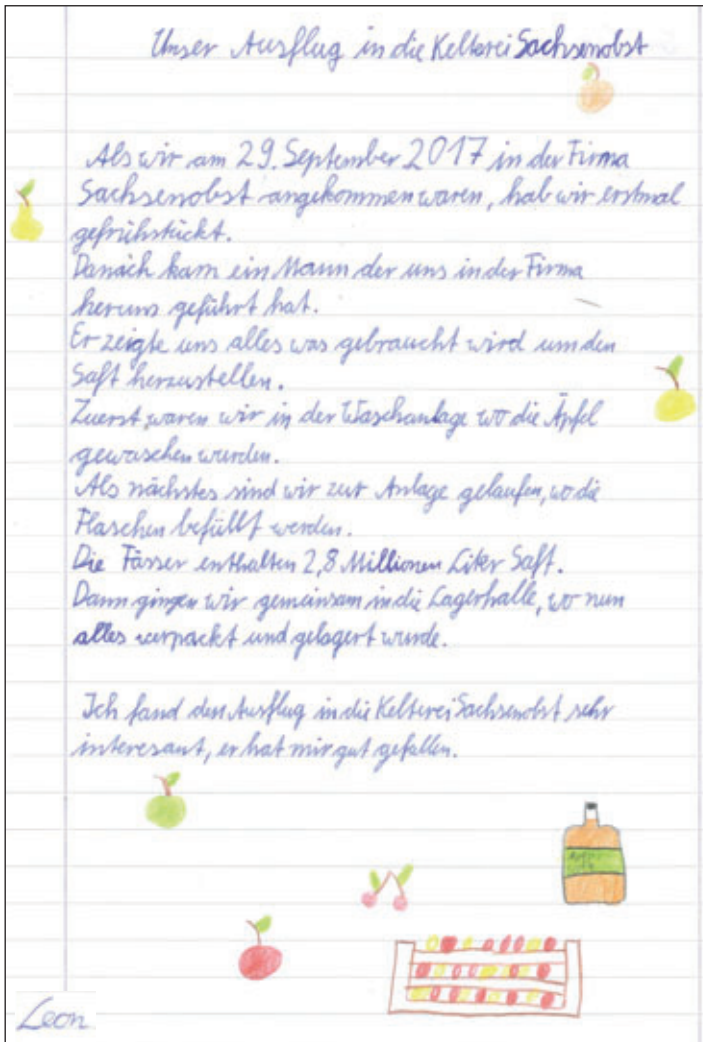 Unser Ausflug in die Kelterei Sachsenobst
Als wir am 29. September 2017 in der Firma
Sachsenobst angekommen waren, hab wir erstmal
gefrühstückt.
Danach kam ein Mann der uns in der Firma
herums geführt hat.
Er zeigte uns alles was gebraucht wird um den
Saft herzustellen.
Zuerst waren wir in der Waschanlage wo die Äpfel
gewaschen wurden.
Als nächstes sind wir zur Anlage gelaufen, wo die
Flaschen befüllt werden.
Die Fässer enthalten 2,8 Millionen Liter Saft.
Dann gingen wir gemeinsam in die Lagerhalle, wo nun
alles verpackt und gelagert wurde.
Ich fand den Ausflug in die Kelterei Sachsenobst sehr
interesant, er hat mir gut gefallen.
Leon